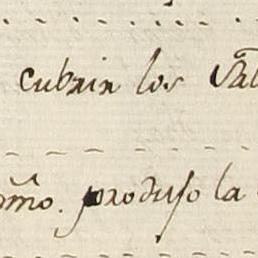 cubrir los
produjo la